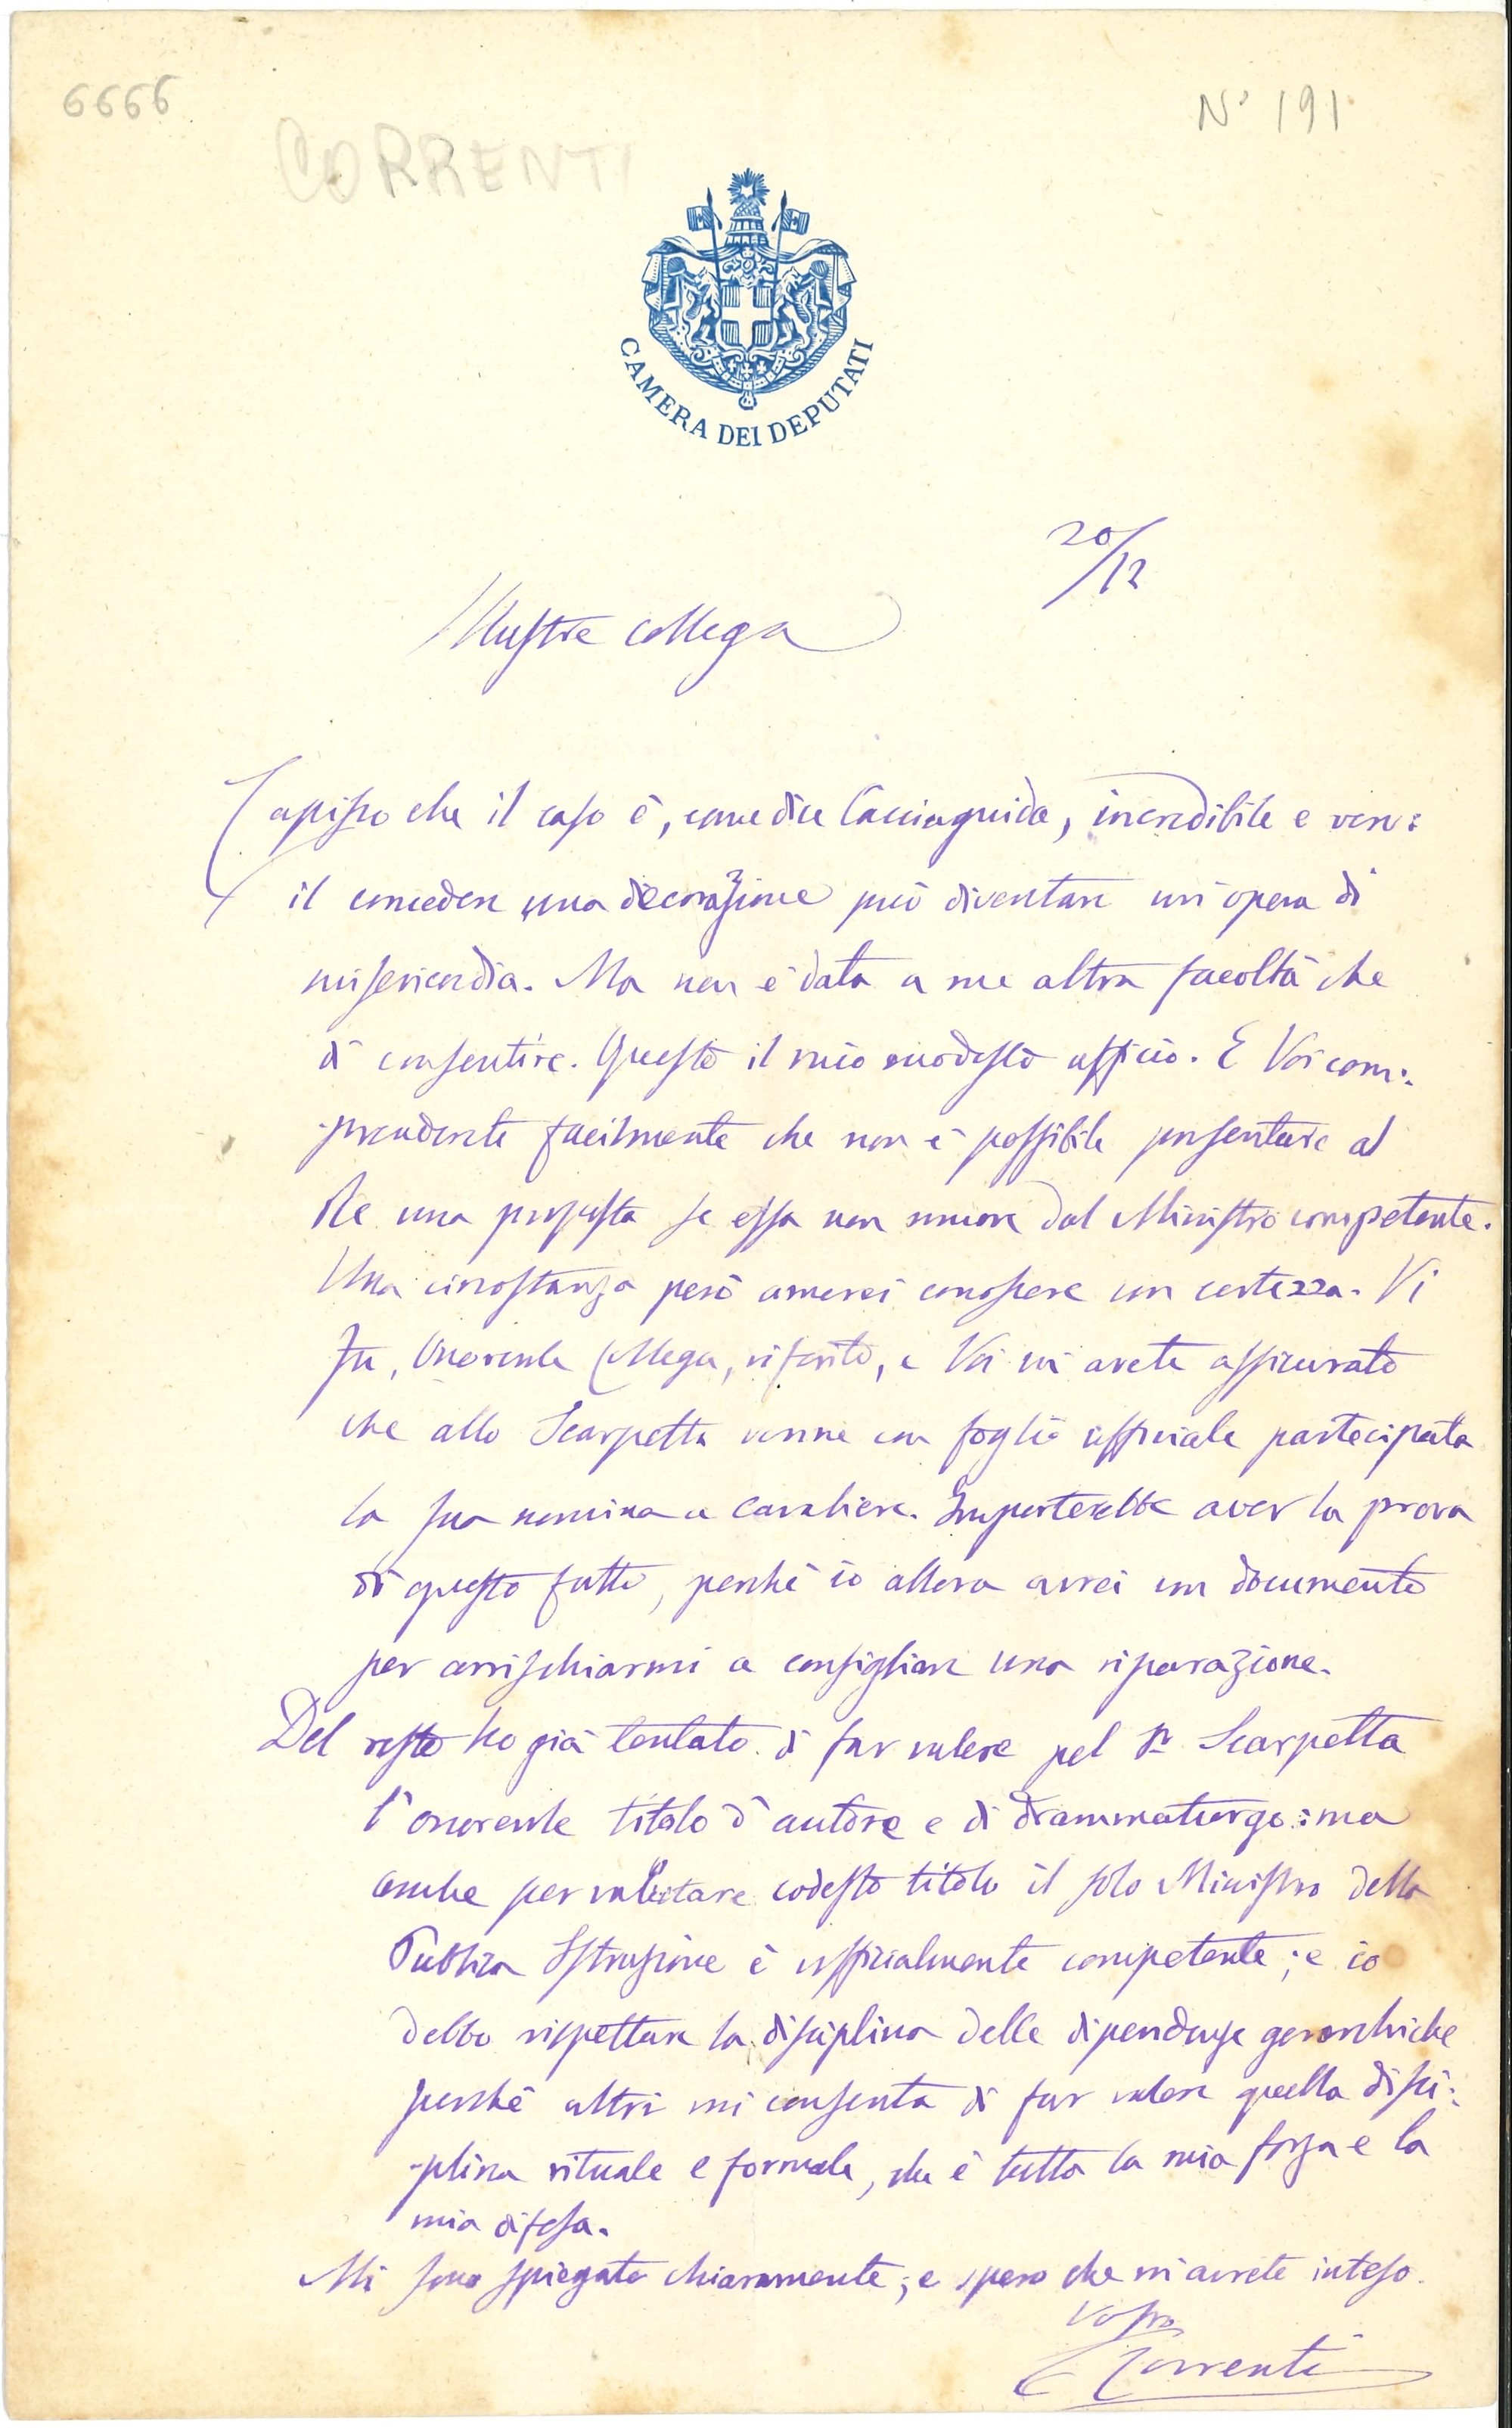 6666
N° 191
CORRENTI
CAMERA DEI DEPUTATI
20/12
Illustre collega
Capisco che il caso è, come dice Cacciaguida, incredibile e vero:
il concedere una decorazione può diventare un'opera di
misericordia. Ma non è data a me altra facoltà che
di consentire. Questo il mio modesto officio. E Voi com:
prenderete facilmente che non è possibile presentare al
Re una proposta se essa non muove dal Ministro competente.
Una circostanza però amerei conoscere con certezza. Vi
fu, Onorevole Collega, riferito, e Voi mi avete assicurato
che allo Scarpetta venne con foglio ufficiale partecipata
la sua nomina a cavaliere. Importerebbe aver la prova
di questo fatto, perchè io allora avrei un documento
per arrischiarmi a consigliare una riparazione.
Del resto ho già tentato di far valere pel Sr Scarpetta
l'onorevole titolo d'autore e di drammaturgo: ma
anche per valutare codesto titolo il solo Ministro della
Pubblica Istruzione è ufficialmente competente; e io
debbo rispettare la disciplina delle dipendenze gerarchiche
perchè altri mi consenta di far valere quella disci:
-plina rituale e formale, che è tutta la mia forza e la
mia difesa.
Mi sono spiegato chiaramente; e spero che mi avrete inteso.
Vostro
C Correnti